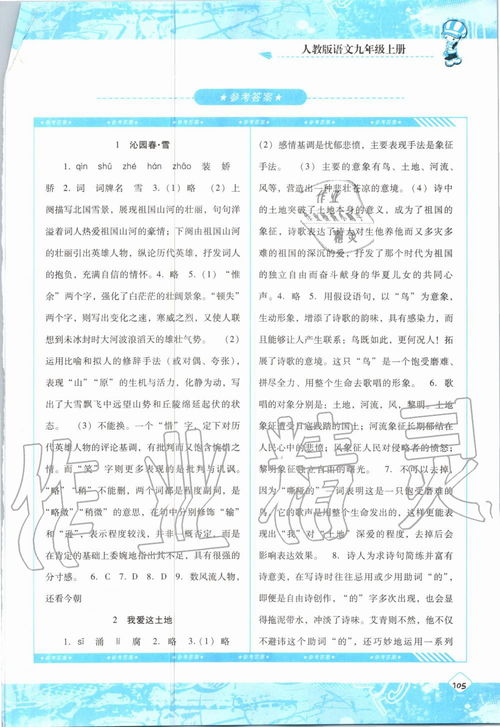 人教版语文九年级上册
参考答案
1 沁园春·雪
1. qìn shǔ zhé hán zhāo 装 娇
骄 2. 词 词牌名 雪 3. (1) 略 (2) 上
阕描写北国雪景，展现祖国山河的壮丽，句句洋
溢着对祖国山河的豪情；下阕由祖国山河
的壮丽引出英雄人物，纵论历代英雄，抒发词人
的抱负，充满自信的情怀。4. 略 5. (1)“惟
余”两个字，强化了白茫茫的壮阔景象。“顿失”
两个字，则写出变化之速，寒威之烈，又使人联
想到未冰封时大河波浪滔天的雄壮气势。 (2)
运用比喻和拟人的修辞手法（或对偶、夸张），
表现“山”“原”的生机与活力，化静为动，写
出了大雪飘飞中远望山势和丘陵绵延起伏的状
态。 (3) 不能换。一个“惜”字，定下对历
代英雄人物的评论基调，有批判而又饱含惋惜之
情。而“笑”字则更多表现的是批判与讥讽。
“略”“稍”不能删，两个词都是程度副词，是
“略微”“稍微”的意思，在句中分别修饰“输”
和“逊”，表示程度较浅，并非一概否定，而是
在肯定的基础上委婉地指出其不足，具有很强的
分寸感。 6. C 7. D 8. D 9. 数风流人物，
还看今朝
2 我爱这土地
1. sī 涌 lì 腐 2. 略 3. (1) 略
(2) 感情基调是忧郁悲愤，主要表现手法是象征
手法。 (3) 主要的意象有鸟、土地、河流、
风等，营造出一种悲壮苍凉的意境。 (4) 诗中
的土地突破了土地本身的意义，成为了祖国的
象征，诗歌表达了诗人对生他养他而又多灾多
难的祖国的深沉的爱，抒发了那个时代华夏儿女
的独立自由而奋斗献身的华夏儿女的共同心
声。 4. 略 5. 用假设语句，以“鸟”为意象，
生动形象，增添了诗歌的韵味，形象具体，而
且能够让人产生联系；鸟既如此，更何况人！拓
展了诗歌的意境。这只“鸟”是一个饱受磨难、
拼尽全力，用整个生命去歌唱的形象。 6. 歌
唱的对象分别是：土地，河流，风，黎明。土地
象征遭受日寇践踏的国土；河流象征长期郁结在
人民心中的悲愤；风象征人民对侵略者的愤怒；
黎明象征独立自由的曙光。 7. 不可以去掉。
因为“嘶哑的”一词表明这是一只饱受磨难的
鸟，它的歌声是用整个生命发出的，这样更能表
现出“我”对“土地”深爱的程度，去掉后会
影响表达效果。 8. 诗人为求诗句简练并富有
诗意美，在写诗时往往忌用或少用助词“的”，
即便是自由诗创作，“的”字多次出现，也会显
得拖泥带水，冲淡了诗味。艾青则不然，他不仅
不避讳这个助词“的”，还巧妙地运用一系列
105
作业精灵